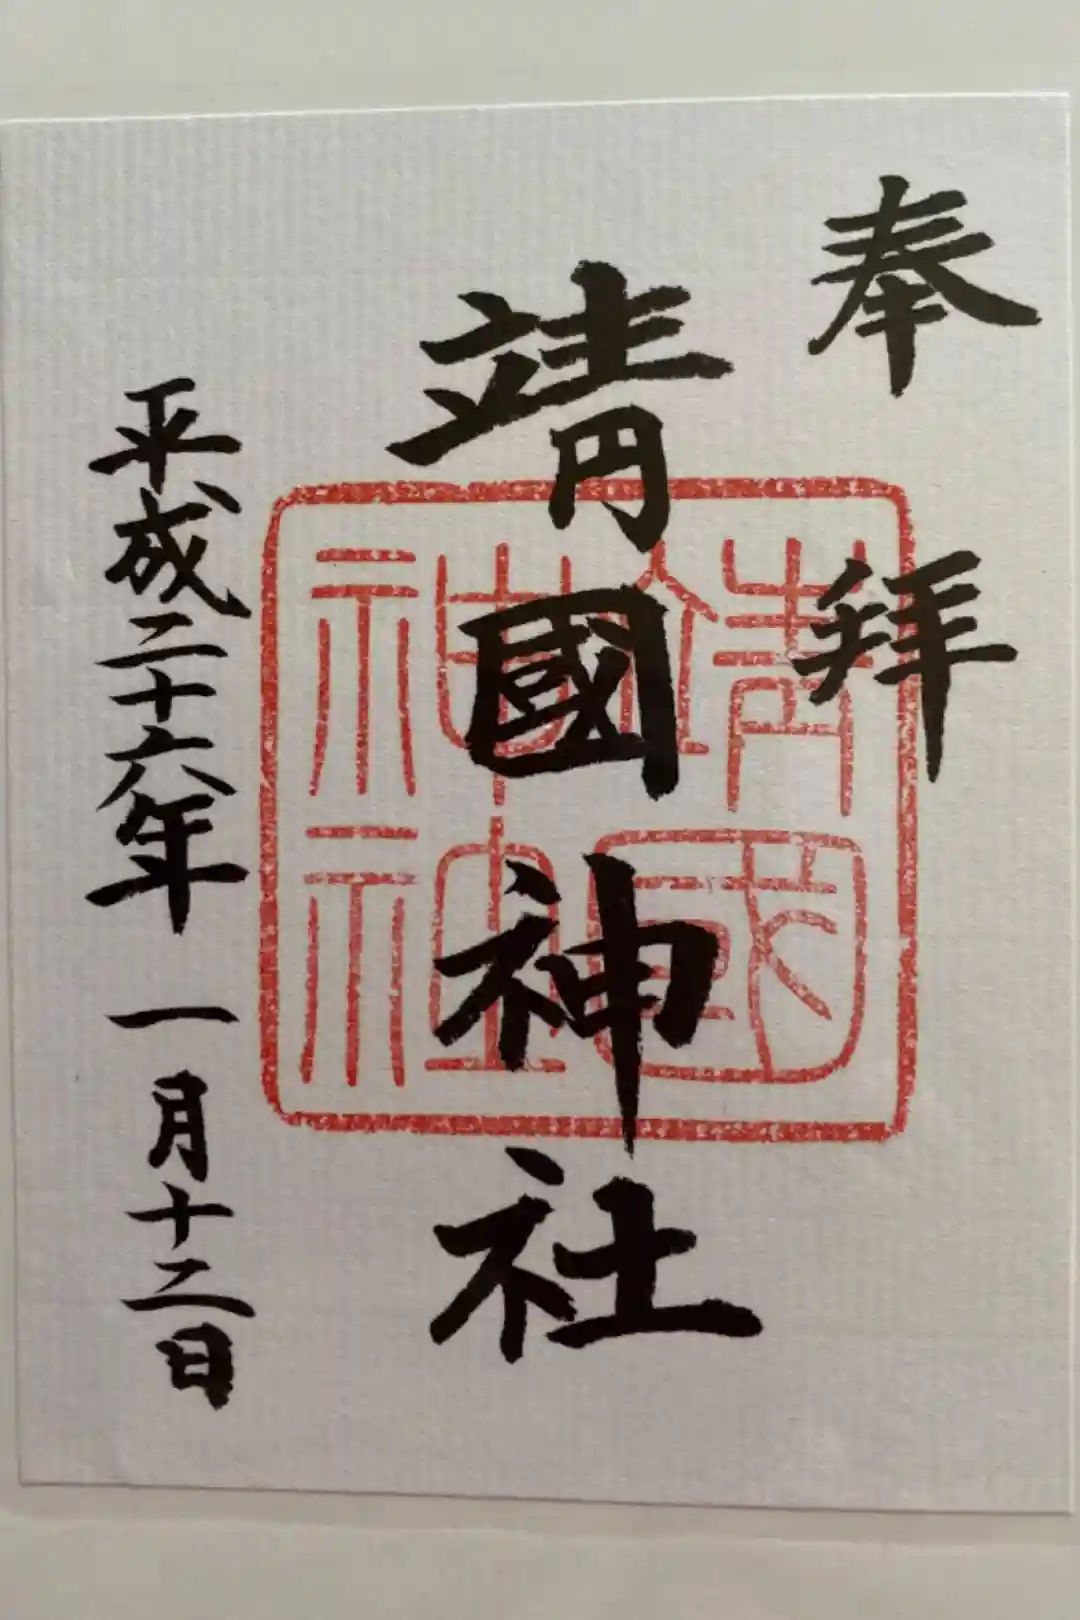 奉拝
靖國神社
平成二十六年一月十二日
靖國
神社